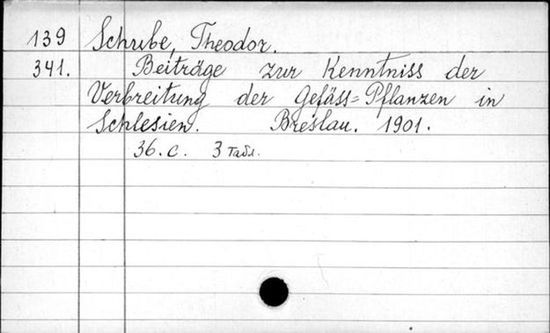 139 Schube, Theodor.
341. Beiträge zur Kenntniss der
Verbreitung der Gefäss=Pflanzen in
Schlesien. Breslau. 1901.
36. с. 3 табл.